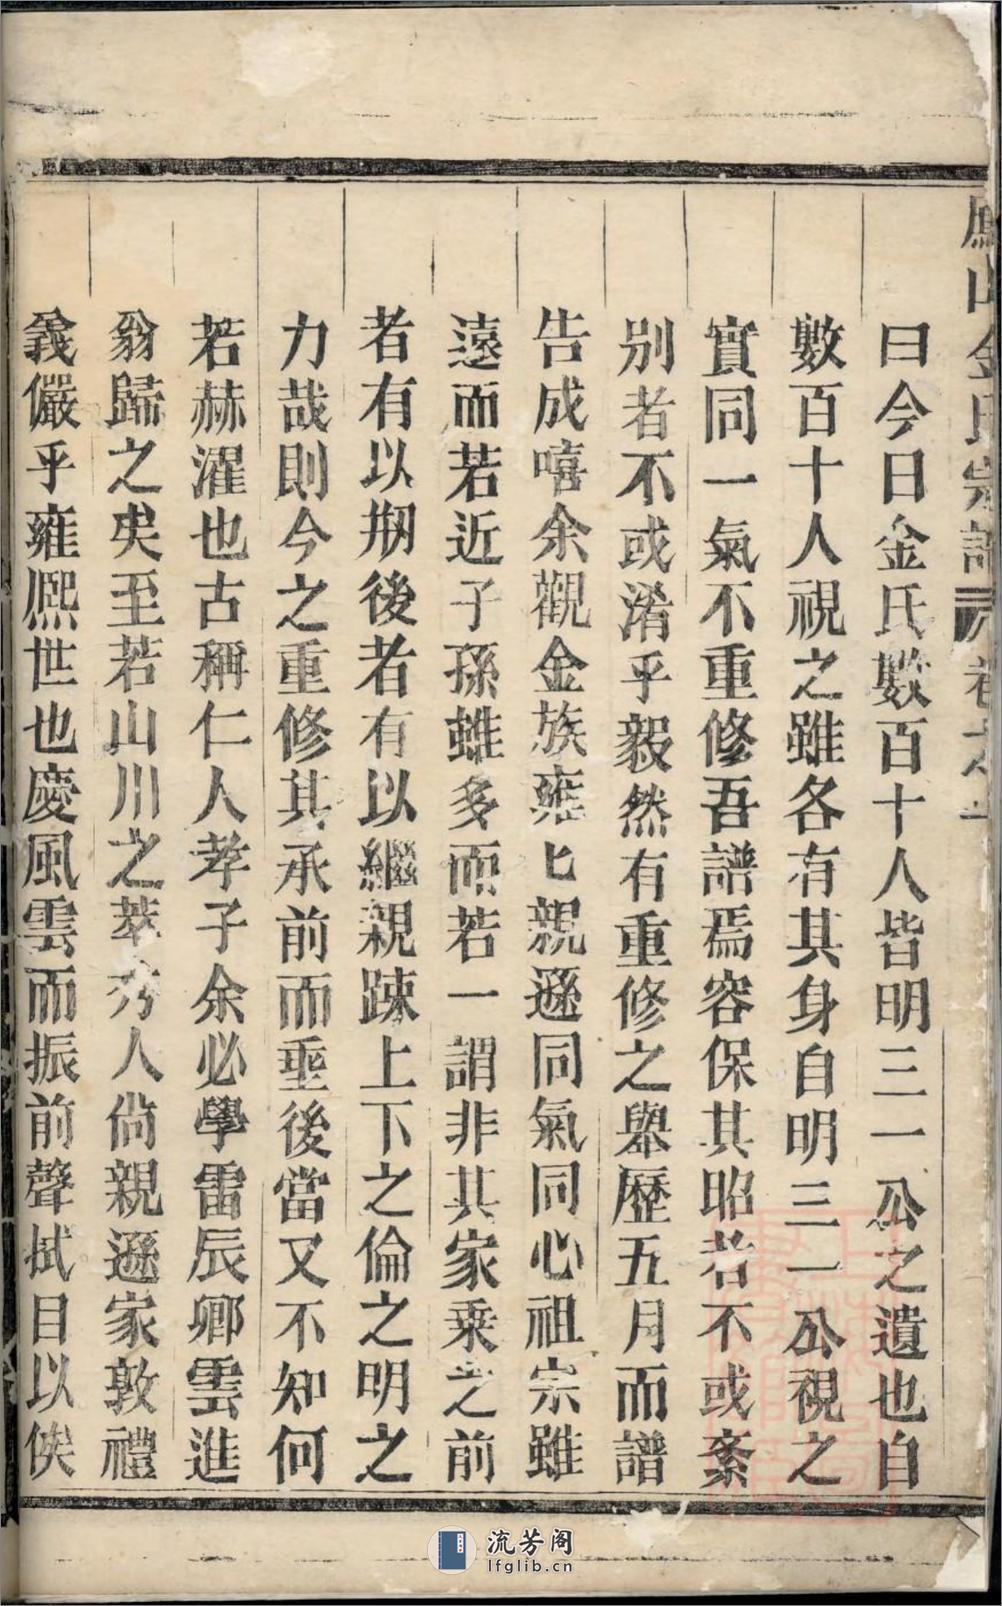 山金氏宗譜 卷之一
曰今日金氏數百十人皆明三一公之遺也自
數百十人視之雖各有其身自明三一公視之
實同一氣不重修吾譜焉容保其昭者不或紊
別者不或淆乎毅然有重修之舉歷五月而譜
告成嘻余觀金族雍匕親遜同氣同心祖宗雖
遠而若近子孫雖多而若一謂非其家乗之前
者有以剏後者有以繼親疎上下之倫之明之
力哉則今之重修其承前而垂後當又不知何
若赫濯也古稱仁人孝子余必學雷辰卿雲進
翁歸之矣至若山川之萃秀人尚親遜家敦禮
義儼乎雍熙世也慶風雲而振前聲拭目以俟
流芳阁
lfglib.cn